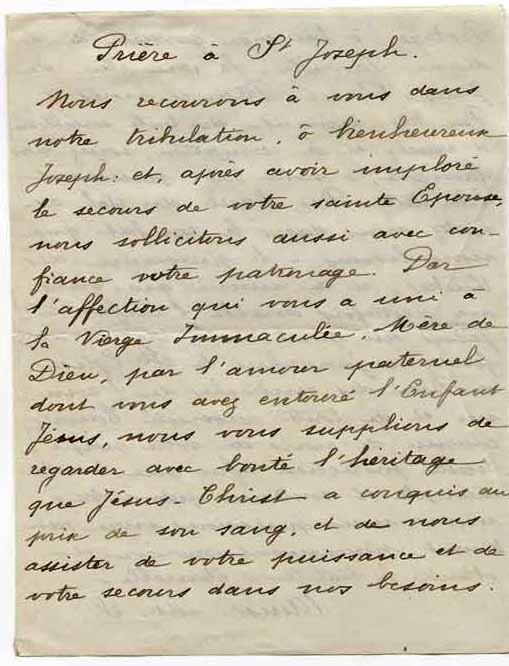 Prière à St Joseph.
Nous recourons à vous dans
notre tribulation, ô bienheureux
Joseph: et, après avoir imploré
le secours de votre sainte Epouse,
nous sollicitons aussi avec con-
fiance votre patronage. Par
l'affection qui vous a uni à
la Vierge Immaculée, Mère de
Dieu, par l'amour paternel
dont vous avez entouré l'Enfant
Jésus, nous vous supplions de
regarder avec bonté l'héritage
que Jésus-Christ a conquis au
prix de son sang, et de nous
assister de votre puissance et de
votre secours dans nos besoins.